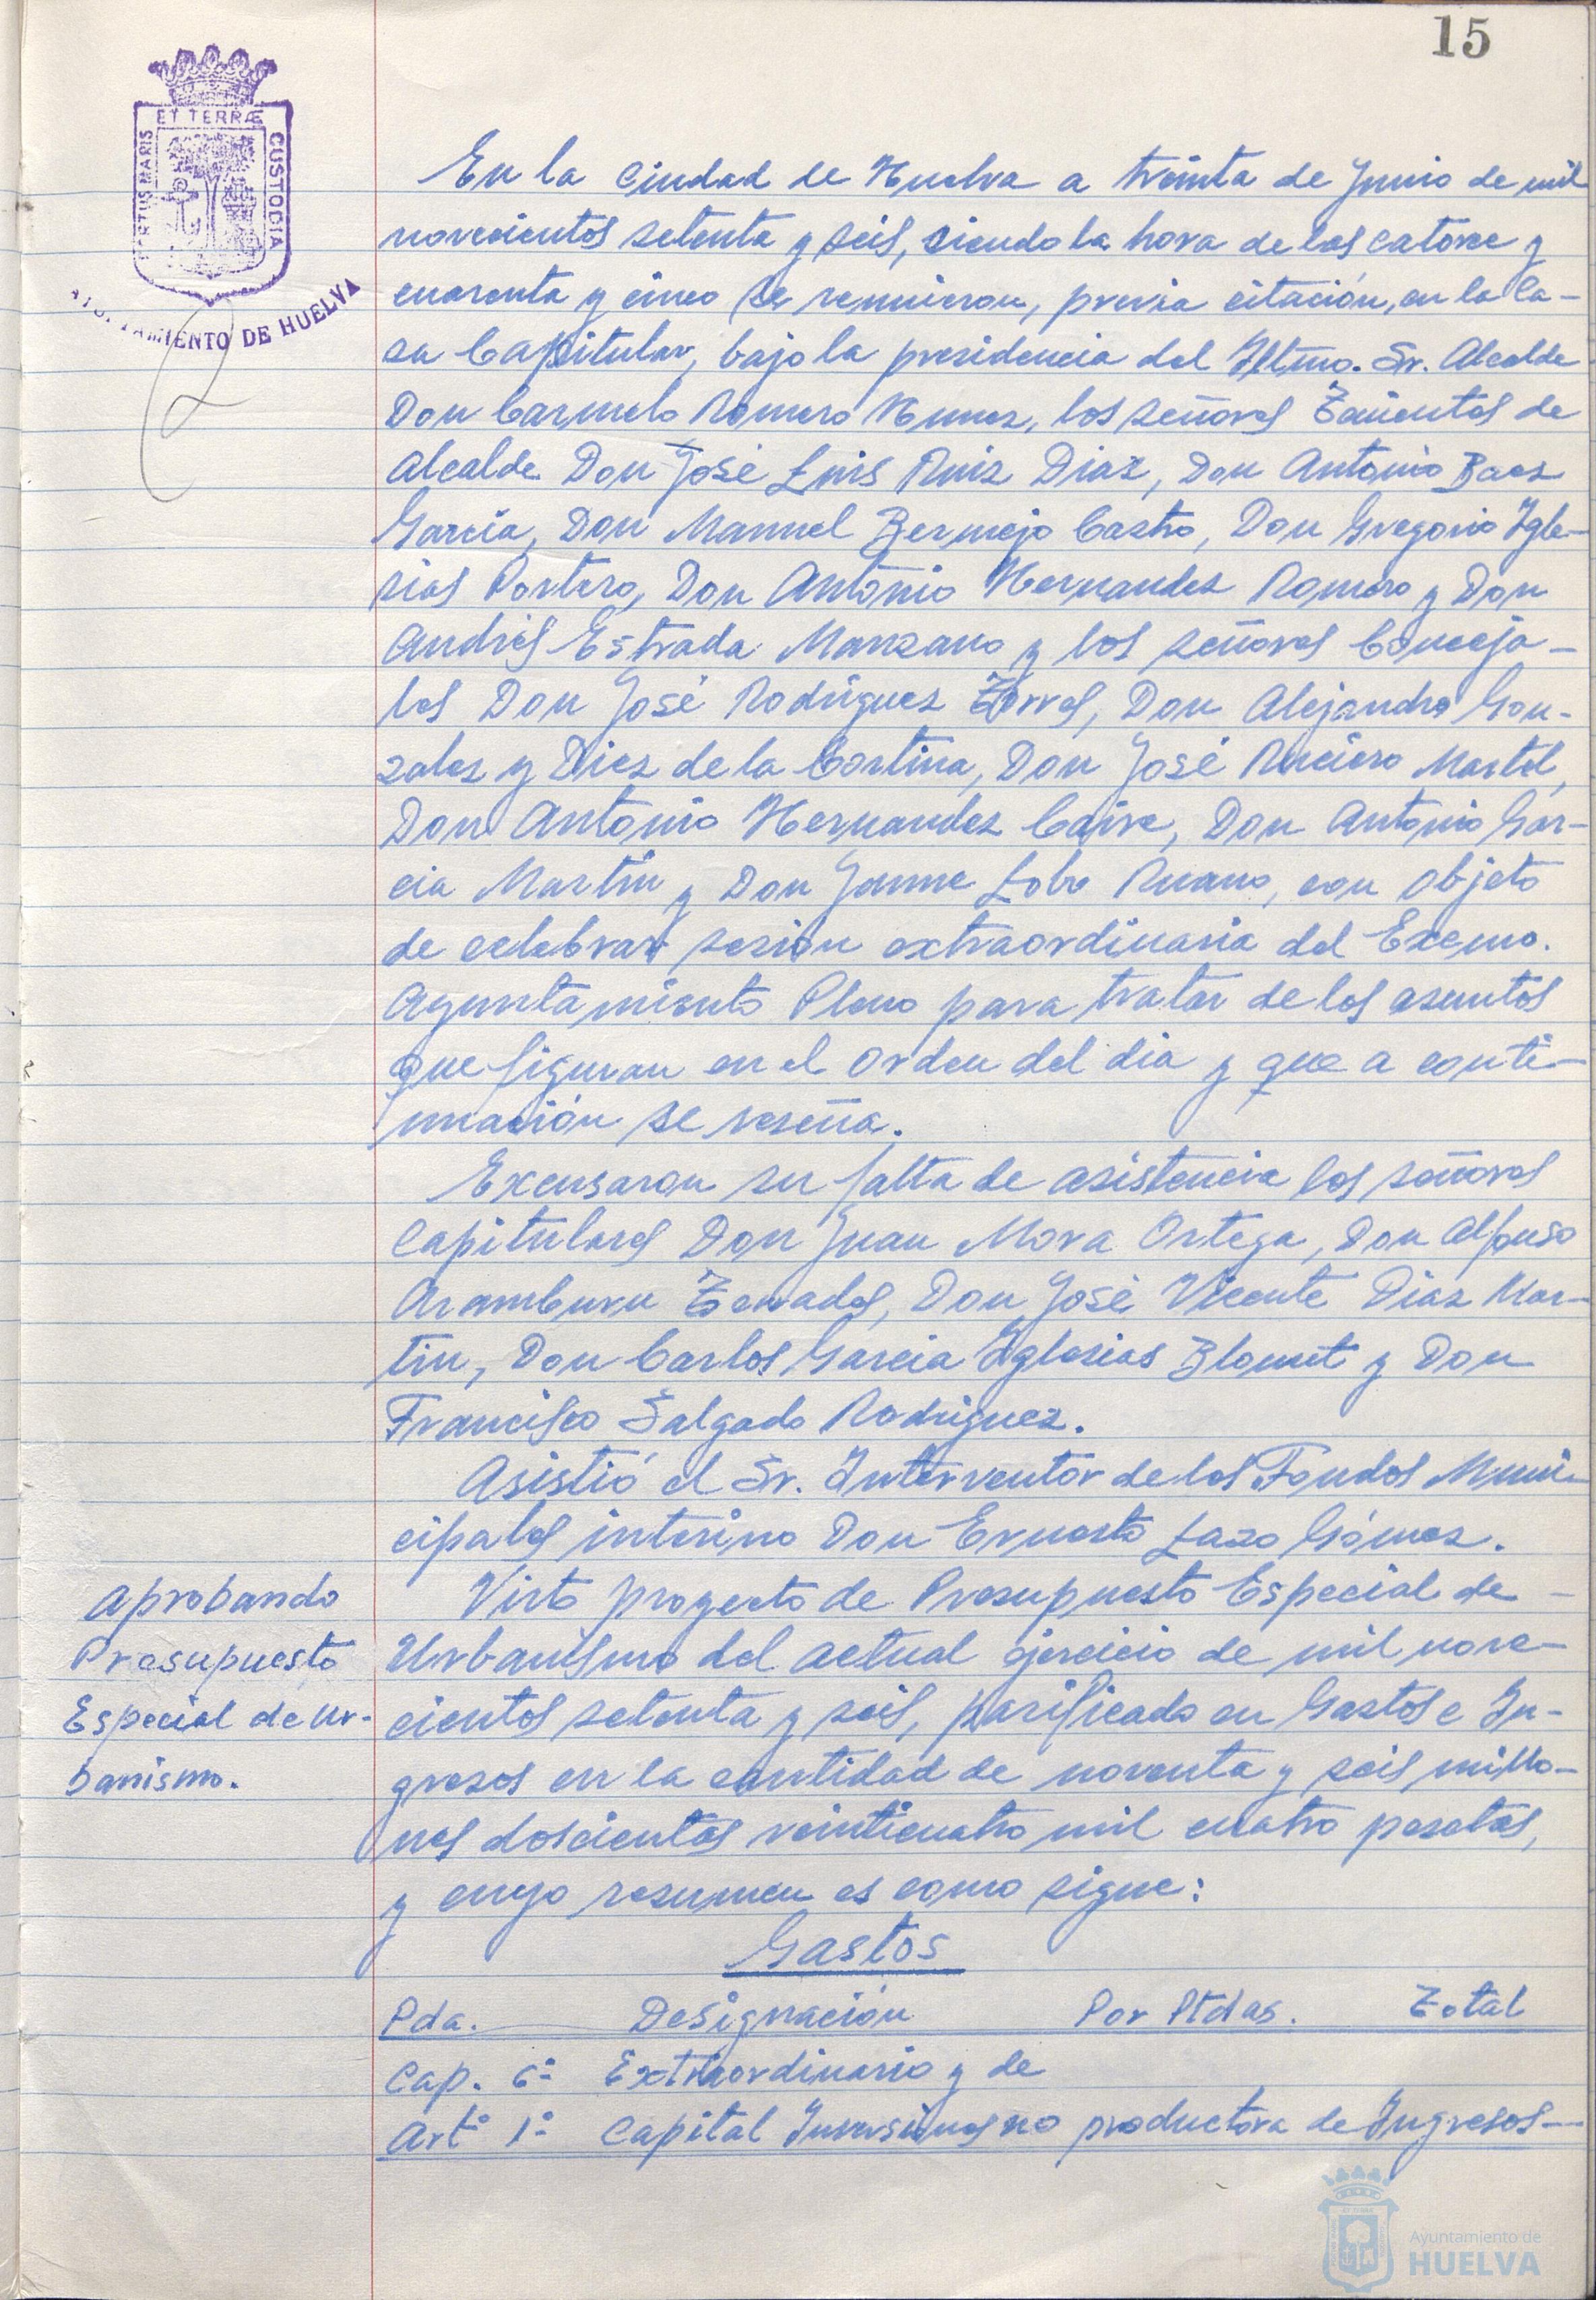 15
ET TERRÆ
PORTUS MARIS
CUSTODIA
AYUNTAMIENTO DE HUELVA
En la Ciudad de Huelva a treinta de Junio de mil
novecientos setenta y seis, siendo la hora de las catorce y
cuarenta y cinco se reunieron, previa citación, en la Ca-
sa Capitular, bajo la presidencia del Iltmo. Sr. Alcalde
Don Carmelo Romero Nuñez, los señores Tenientes de
Alcalde Don José Luis Ruiz Diaz, Don Antonio Baez
Garcia, Don Manuel Bermejo Castro, Don Gregorio Igle-
sias Portero, Don Antonio Hernandez Romero y Don
Andrés Estrada Manzano y los señores Conceja-
les Don José Rodriguez Torres, Don Alejandro Gon-
zalez y Diez de la Cortina, Don José Ruciero Martel,
Don Antonio Hernandez Caire, Don Antonio Gar-
cia Martín y Don Jaime Lobo Ruano, con objeto
de celebrar sesión extraordinaria del Excmo.
Ayuntamiento Pleno para tratar de los asuntos
que figuran en el Orden del día y que a conti-
nuación se reseña.
Excusaron su falta de asistencia los señores
Capitulares Don Juan Mora Ortega, Don Alfonso
Aramburu Terrades, Don José Vicente Diaz Mar-
tin, Don Carlos Garcia Iglesias Blomet y Don
Francisco Salgado Rodriguez.
Asistió el Sr. Interventor de los Fondos Muni-
cipales interino Don Ernesto Lazo Gómez.
Aprobando
Presupuesto
Especial de Ur-
banismo.
Visto proyecto de Presupuesto Especial de
Urbanismo del actual ejercicio de mil nove-
cientos setenta y seis, parificado en Gastos e In-
gresos en la cantidad de noventa y seis millo-
nes doscientas veinticuatro mil cuatro pesetas,
y cuyo resumen es como sigue:
Gastos
Pda. Designación Por Ptdas. Total
Cap. 6º Extraordinario y de
Artº 1º Capital Inversiones no productora de Ingresos—
Ayuntamiento de
HUELVA